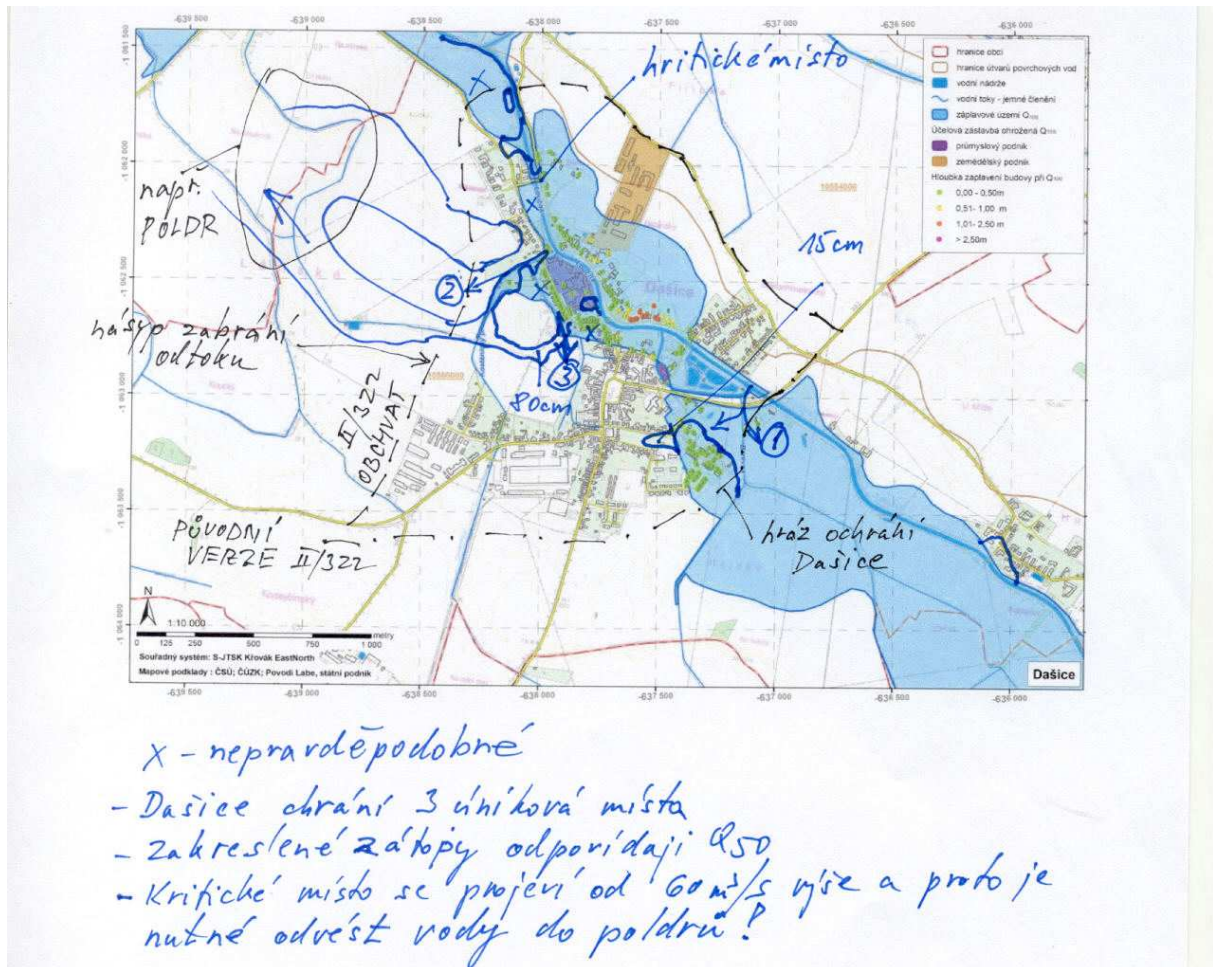 -639 500 -639 000 -638 500 -638 000 -637 500 -637 000 -636 500 -636 000
-1 061 500
-1 062 000
-1 062 500
-1 063 000
-1 063 500
-1 064 000
hranice obcí
hranice útvarů povrchových vod
vodní nádrže
vodní toky - jemné členění
záplavové území Q100
Účelová zástavba ohrožená Q100
průmyslový podnik
zemědělský podnik
Hloubka zaplavení budovy při Q100
0,00 - 0,50m
0,51- 1,00 m
1,01- 2,50 m
> 2,50m
kritické místo
x
např.
POLDR
x
15cm
2
Dašice
násyp zabrání
odtoku
x
3
80cm
II/322
OBCHVAT
1
PŮVODNÍ
VERZE II/322
hráz ochrání
Dašice
N
1:10 000
0 125 250 500 750 1 000
metry
Souřadný systém: S-JTSK Křovák EastNorth
Mapové podklady : ČSÚ; ČÚZK; Povodí Labe, státní podnik
Dašice
-639 500 -639 000 -638 500 -638 000 -637 500 -637 000 -636 500 -636 000
x - nepravděpodobné
- Dašice chrání 3 úniková místa
- Zakreslené zátopy odpovídají Q50
- Kritické místo se projeví od 60 m³/s výše a proto je
nutné odvést vody do poldrů!